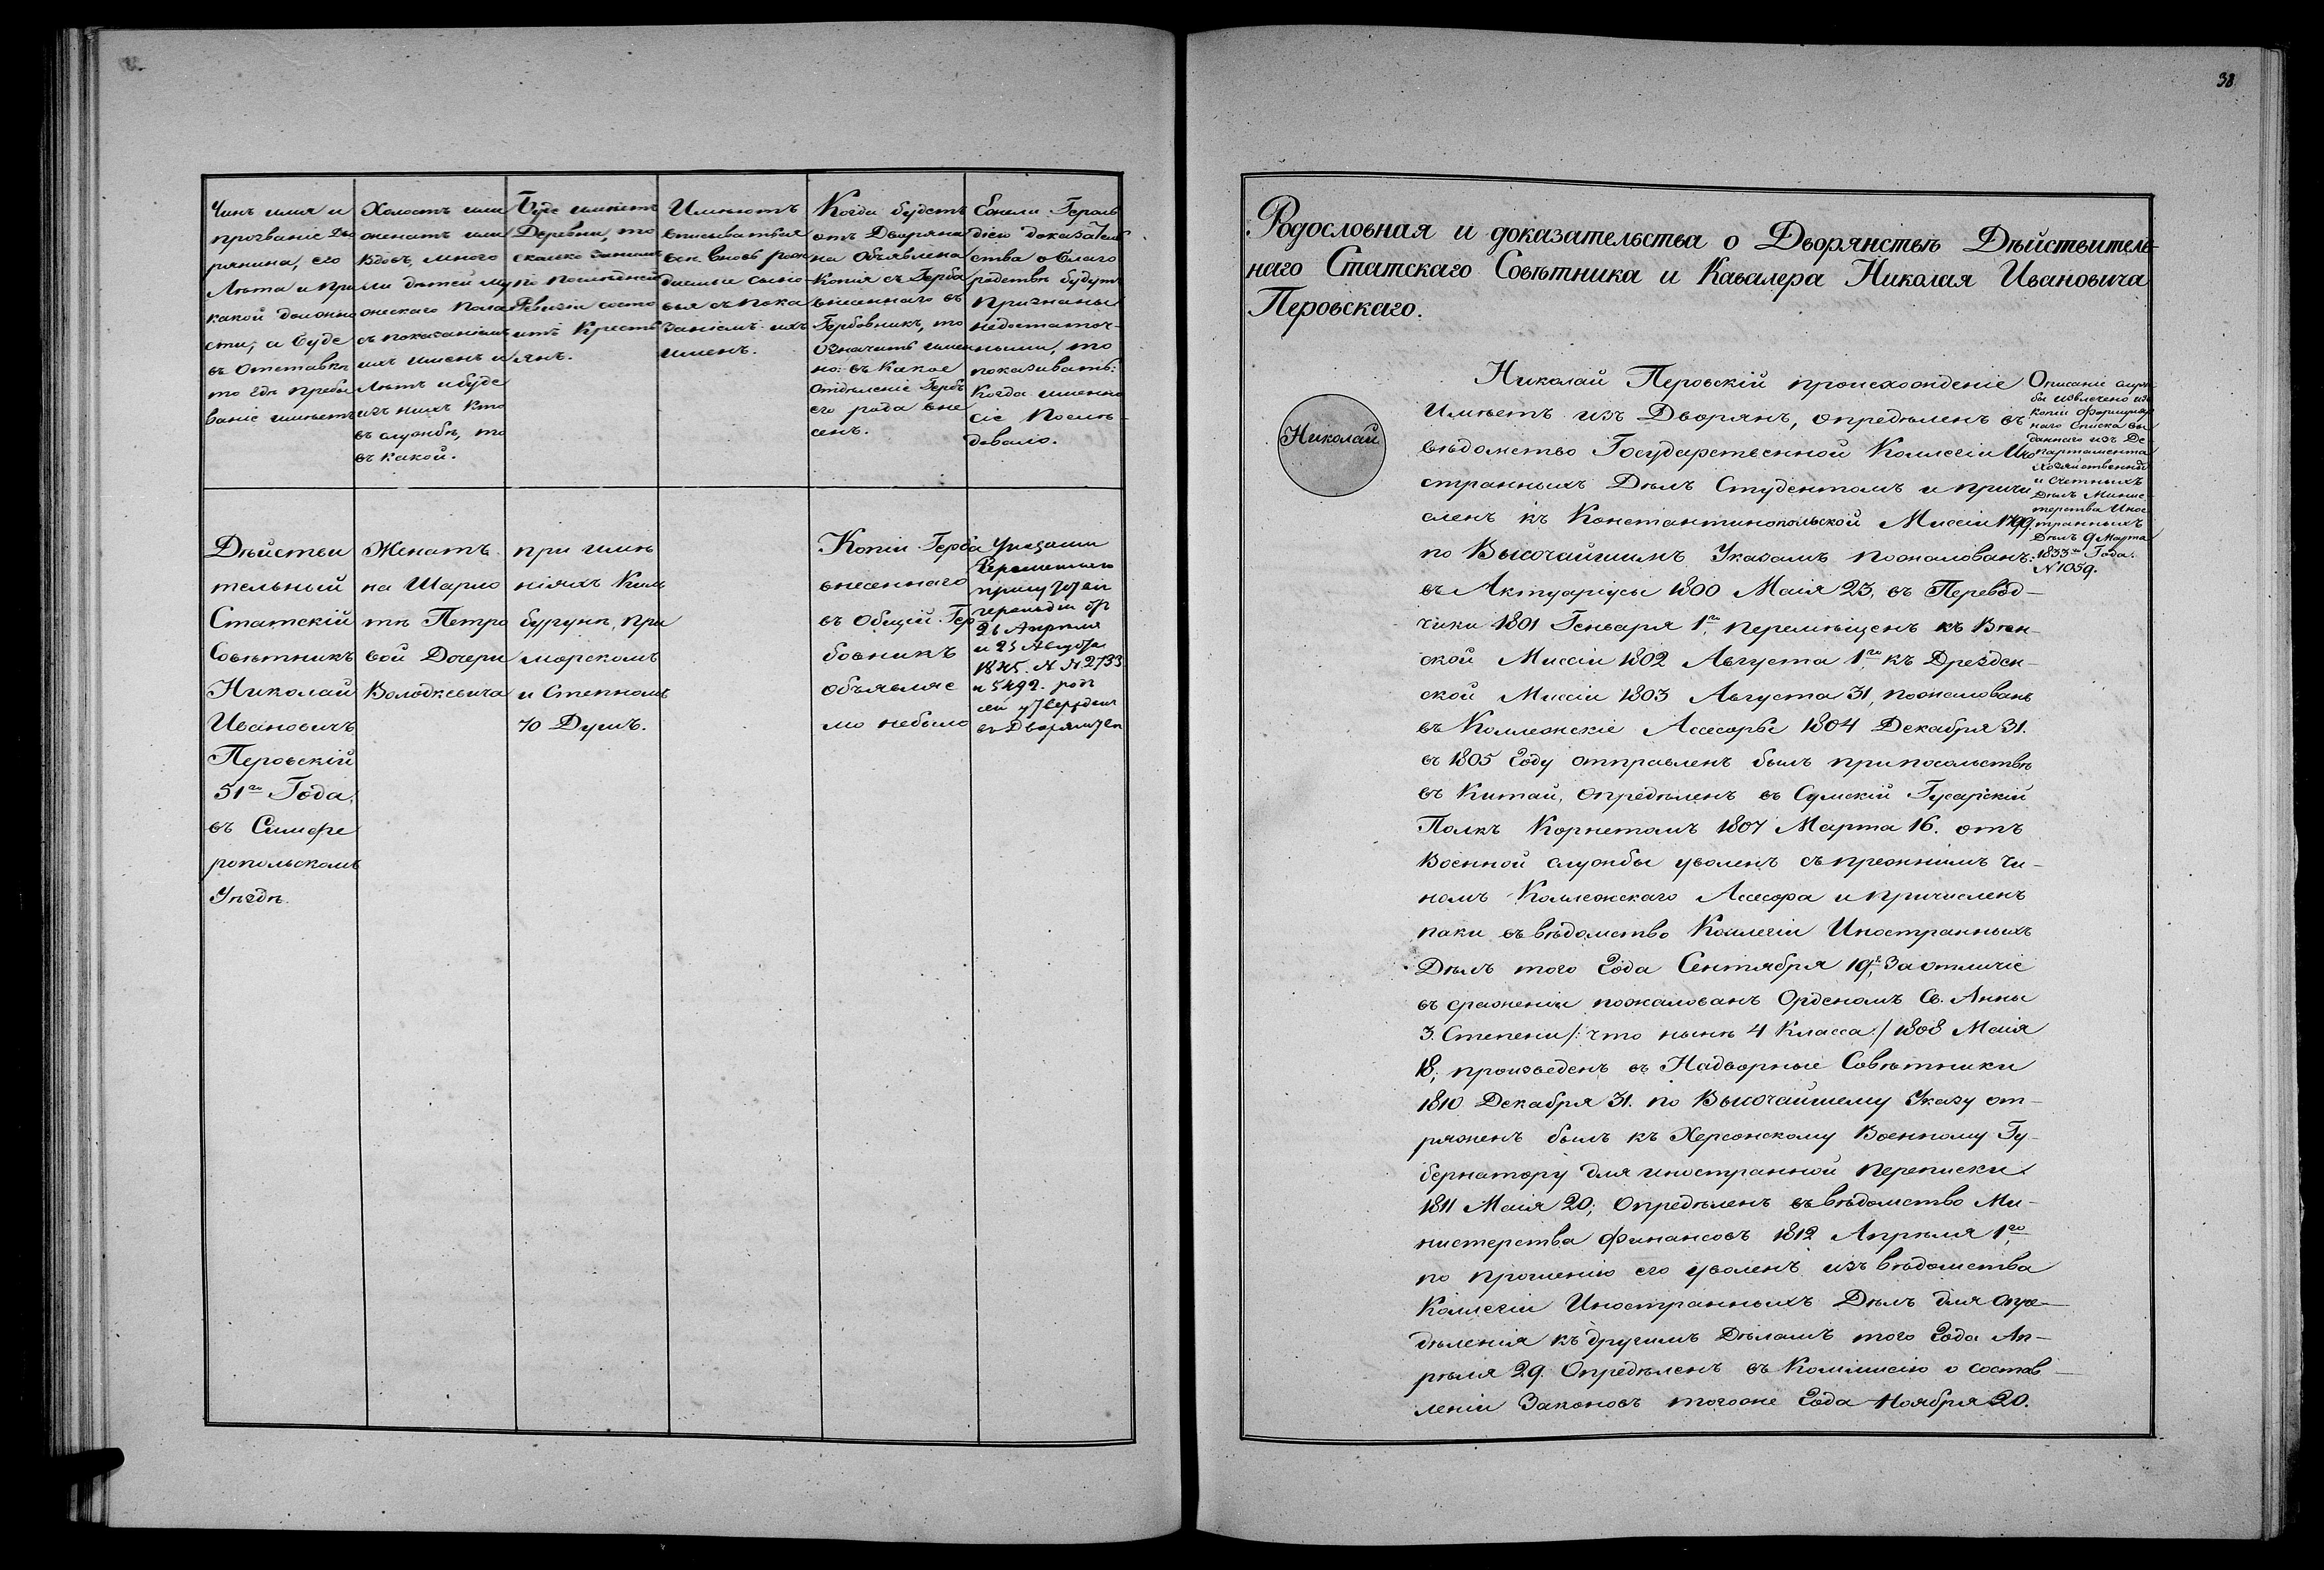 Чинъ имя и
прозваніе Дво
рянина, его
Лѣта и при
какой должно
сти, а буде
въ Отставкѣ
то гдѣ пребы
ваніе имѣетъ
Холостъ или
женатъ или
Вдовъ, много
ли дѣтей му
жескаго Пола
съ показаніемъ
ихъ именъ и
Лѣтъ и буде
изъ нихъ кто
въ службѣ, то
въ какой.
Буде имѣетъ
Деревни, то
сколко за нимъ
по послѣдней
Ревизіи состо
итъ Кресть
янъ.
Имѣютъ
вписыватся
всѣ вновь рож
даемые сыно
вья съ пока
заніемъ ихъ
именъ.
Когда будетъ
отъ Дворяни
на Объявлена
Копія съ Герба
внесеннаго въ
Гербовникъ, то
Означить имен
но: въ Какое
Отдѣленіе Гербъ
его рода вне
сенъ.
Ежели Героль
діею доказатель
ства о благо
родствѣ будутъ
признаны
недостаточ-
ными, то
показывать:
Когда именно
сіе послѣ-
довало.
Дѣйстви
тельный
Статскій
Совѣтникъ
Николай
Ивановичъ
Перовскій
51го Года,
въ Симфе
ропольскомъ
Уѣздѣ.
Женатъ
на Шарло
тѣ Петро
вой Дочери
Володкевича
при имѣ
ніяхъ Киль
бурунѣ, При
морскомъ
и Степномъ
70 Душъ.
Копіи Герба
внесеннаго
въ Общій Гер
бовникъ
объявляе
мо небыло
Указами
Временнаго
присутствія
герольдіи отъ
26 Апрѣля
и 23 Августа
1845. № № 2733
и 5492. родъ
сей утвержденъ
въ Дворянствѣ
38
Родословная и доказательства о Дворянствѣ Дѣйствитель-
наго Статскаго Совѣтника и Кавалера Николая Ивановича
Перовскаго.
Николай
Николай Перовскій происхожденіе
Имѣетъ изъ Дворянъ, опредѣленъ въ
вѣдомство Государственной Коллегіи Ино
странныхъ Дѣлъ Студентомъ и причи
сленъ къ Константинопольской Миссіи 1799.
по Высочайшимъ Указамъ пожалованъ:
въ Актуаріусы 1800 Маія 23, въ Перевод-
чики 1801 Генваря 1го, перемѣщенъ къ Вѣн-
ской Миссіи 1802 Августа 1го къ Дрезден-
ской Миссіи 1803 Августа 31, пожалованъ
въ Коллежскіе Ассесоры 1804 Декабря 31.
въ 1805 Году отправленъ былъ при посольствѣ
въ Китай, Опредѣленъ въ Сумскій Гусарскій
Полкъ Корнетомъ 1807 Марта 16. отъ
Военной службы уволенъ съ прежнимъ чи-
номъ Коллежскаго Ассесора и причисленъ
паки въ вѣдомство Коллегіи Иностранныхъ
Дѣлъ того Года Сентября 19, За отличіе
въ сраженіи пожалованъ Орденомъ Св. Анны
3. Степени /: что нынѣ 4 Класса :/ 1808 Маія
18; произведенъ въ Надворные Совѣтники
1810 Декабря 31. по Высочайшему Указу от-
ряженъ былъ къ Херсонскому Военному Гу-
бернатору для иностранной переписки
1811 Маія 20; Опредѣленъ въ вѣдомство Ми-
нистерства Финансовъ 1812 Апрѣля 1го,
по прошенію его уволенъ изъ вѣдомства
Коллегіи Иностранныхъ Дѣлъ для опре-
дѣленія къ другимъ Дѣламъ того Года Ап-
рѣля 29. Опредѣленъ въ Коммисію о состав-
леніи Законовъ тогоже Года Ноября 20.
Описаніе служ
бы извлечено изъ
копіи Формуляр
наго Списка вы
даннаго изъ Де
партамента
Хозяйственныхъ
и счетныхъ
Дѣлъ Минис
терства Инос
транныхъ
Дѣлъ 9 Марта
1833го Года.
№ 1059.